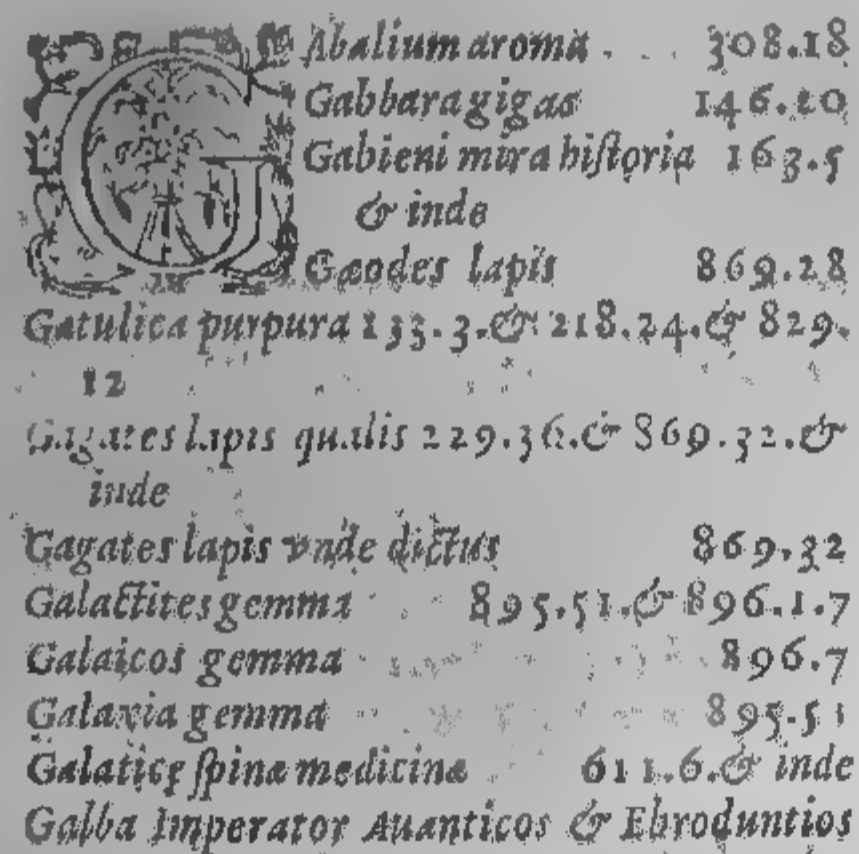 GAbalium aroma 308.18
Gabbara gigas 146.20
Gabieni mira hiſtoria 163.5
& inde
Gæodes lapis 869.28
Gætulica purpura 133.3.& 218.24.& 829.
12
Gagates lapis qualis 229.36.& 869.32.&
inde
Gagates lapis vnde dictus 869.32
Galactites gemma 895.51.& 896.1.7
Galaicos gemma 896.7
Galaxia gemma 895.51
Galaticę ſpinæ medicinæ 611.6.& inde
Galba Imperator Auanticos & Ebroduntios